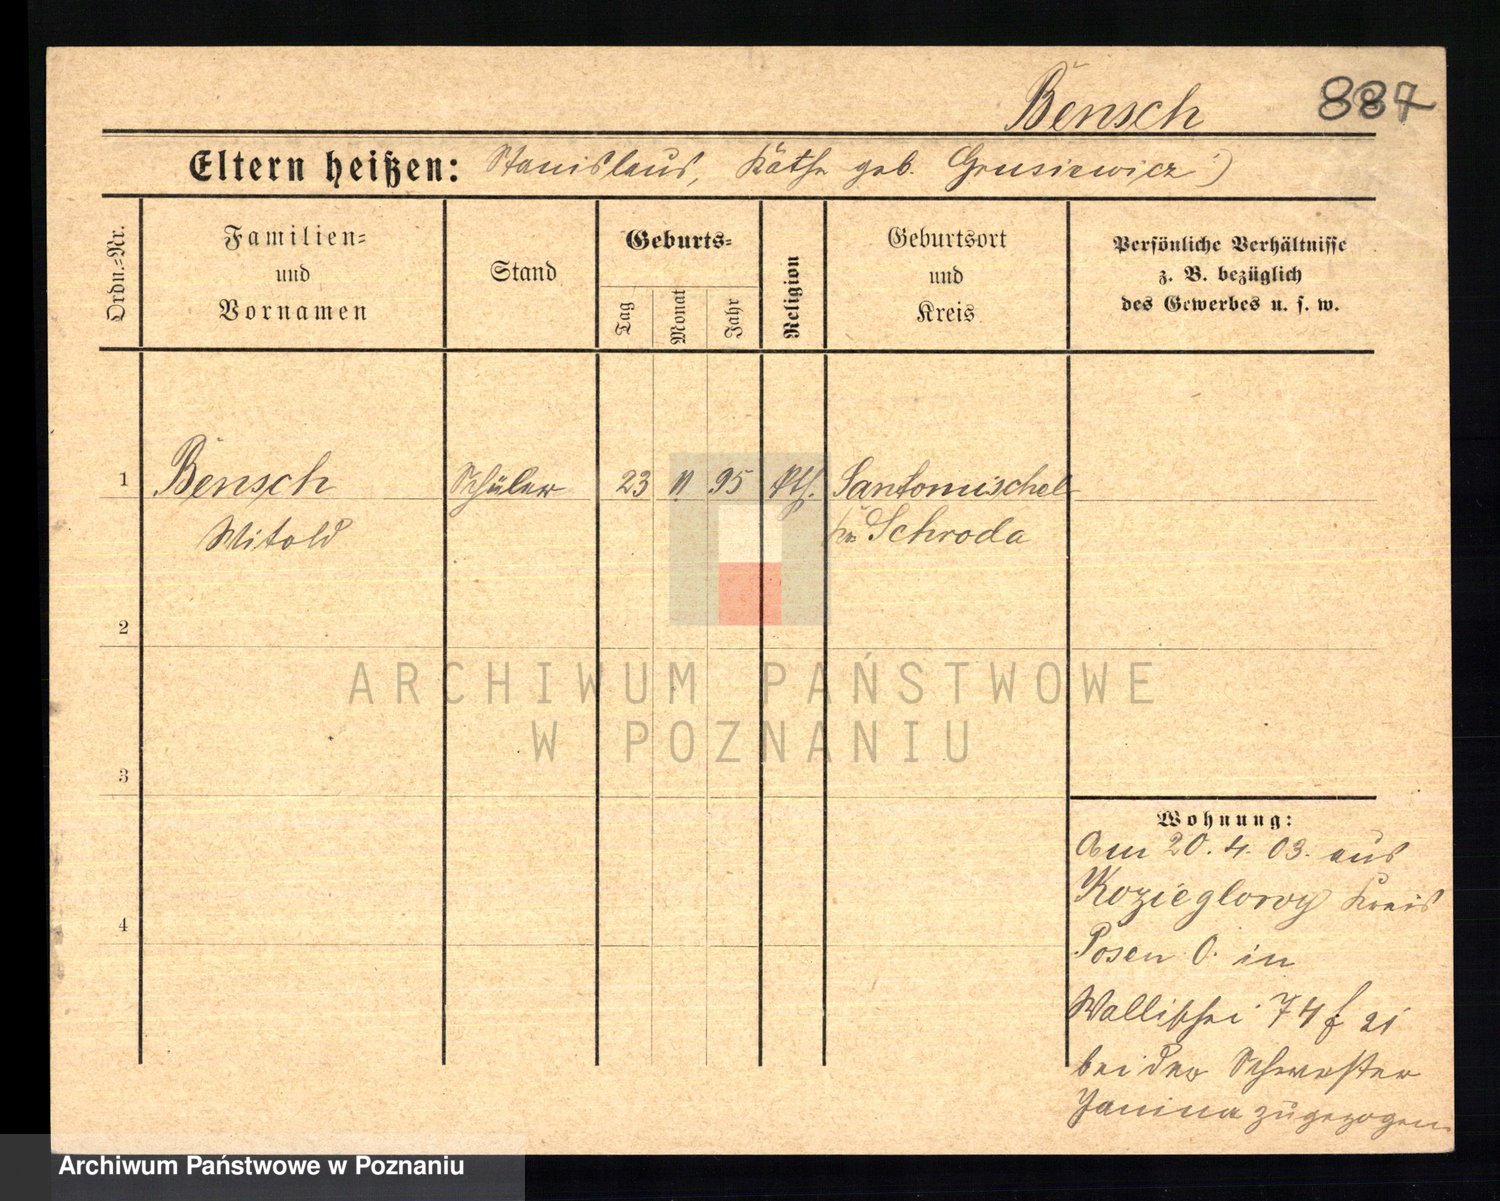 Bensch 887
Eltern heißen: Stanislaus, Käthe geb. Grusiewicz
Ordn.=Nr.
Familien=
und
Vornamen
Stand
Geburts=
Tag
Monat
Jahr
Religion
Geburtsort
und
Kreis
Persönliche Verhältnisse
z. B. bezüglich
des Gewerbes u. s. w.
1 Bensch Schüler 23 11 95 kth. Santomischel
Witold Schroda
2
3
4
Wohnung:
Am 20. 4. 03. aus
Kozieglowy Kreis
Posen O. in
Wallischei 74
bei der Schwester
Janina zugezogen
ARCHIWUM PAŃSTWOWE
W POZNANIU
Archiwum Państwowe w Poznaniu